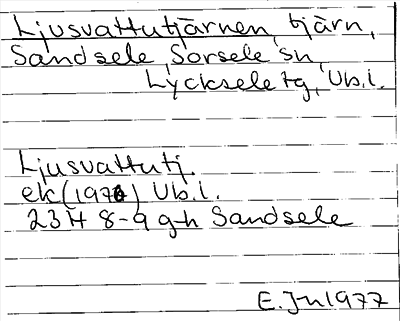 Ljusvattutjärnen, tjärn,
Sandsele, Sorsele sn,
Lycksele tg, Vb.l.
Ljusvattutj.
ek (1976) Vb.l.
23H 8-9 g-h Sandsele
E.Jn 1977